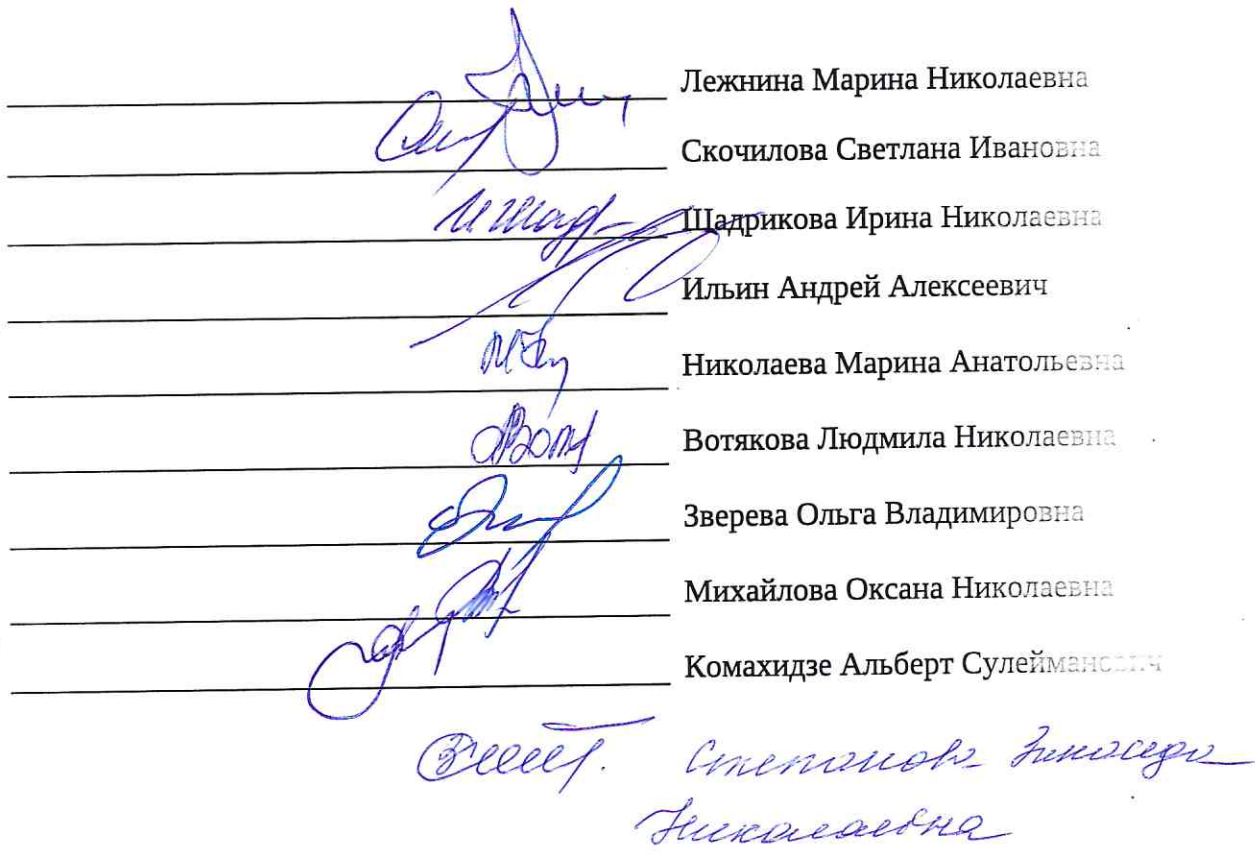 Лежнина Марина Николаевна
Скочилова Светлана Ивановна
Щадрикова Ирина Николаевна
Ильин Андрей Алексеевич
Николаева Марина Анатольевна
Вотякова Людмила Николаевна
Зверева Ольга Владимировна
Михайлова Оксана Николаевна
Комахидзе Альберт Сулейманович
Степанова Зинаида
Николаевна